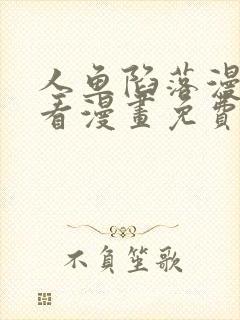 人鱼陷落漫
看漫畫免費
不負笙歌